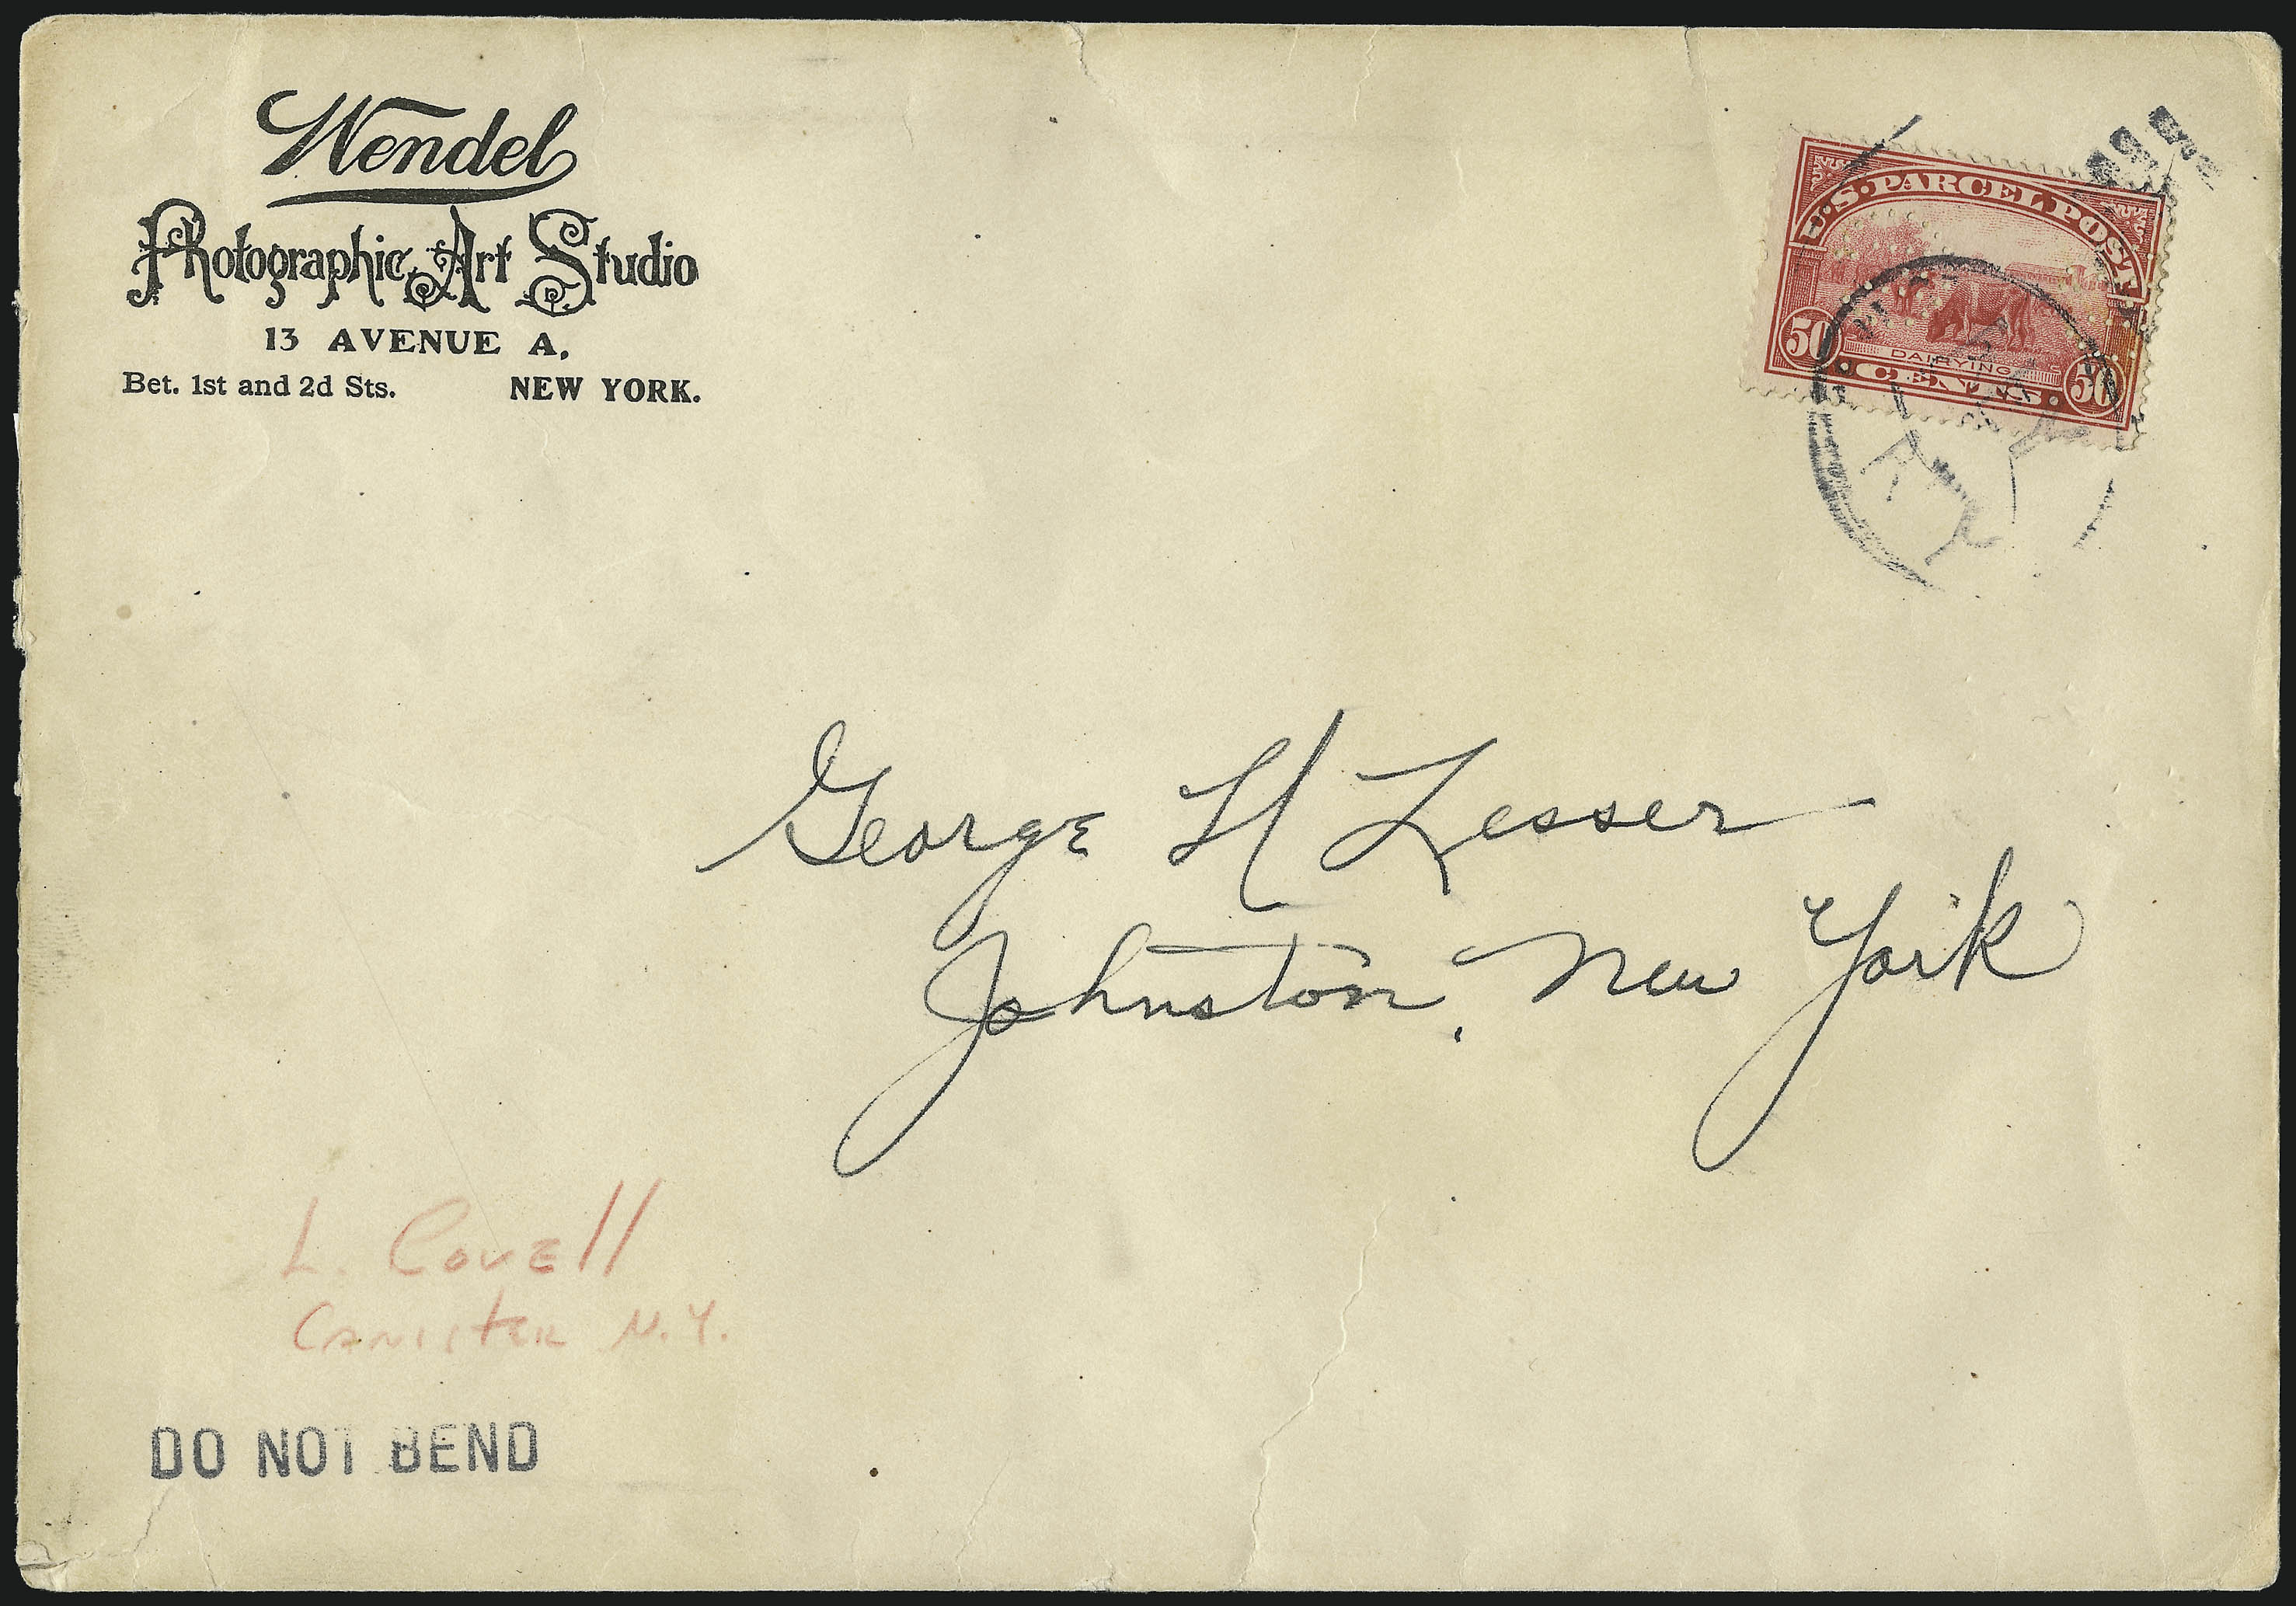 Wendel
Photographic Art Studio
13 AVENUE A.
Bet. 1st and 2d Sts. NEW YORK.
U.S. PARCEL POST
DAIRYING
50 CENTS 50
George H Lesser
Johnston, New York
L. Covell
Canister N.Y.
DO NOT BEND